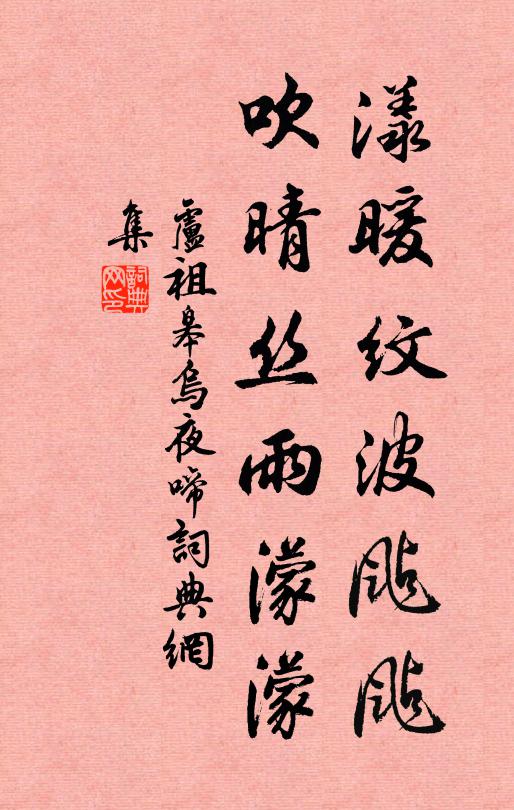 漾暖紋波颭颭
吹晴丝雨濛濛
盧祖皋烏夜啼詞典網
集
詞典
网印